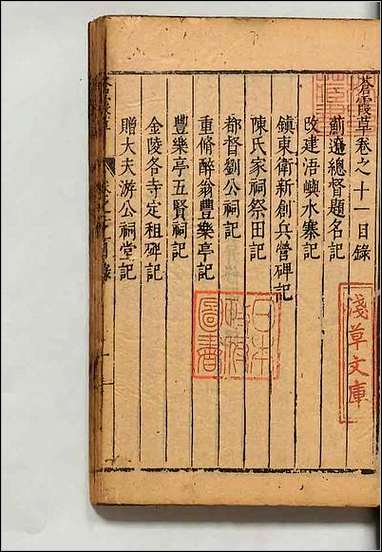 蒼霞草卷之十一目錄
薊遼總督題名記
改建浯嶼水寨記
鎮東衛新創兵營碑記
陳氏家祠祭田記
都督劉公祠記
重修醉翁豐樂亭記
豐樂亭五賢祠記
金陵各寺定租碑記
贈大夫游公祠堂記
淺草文庫
圖書